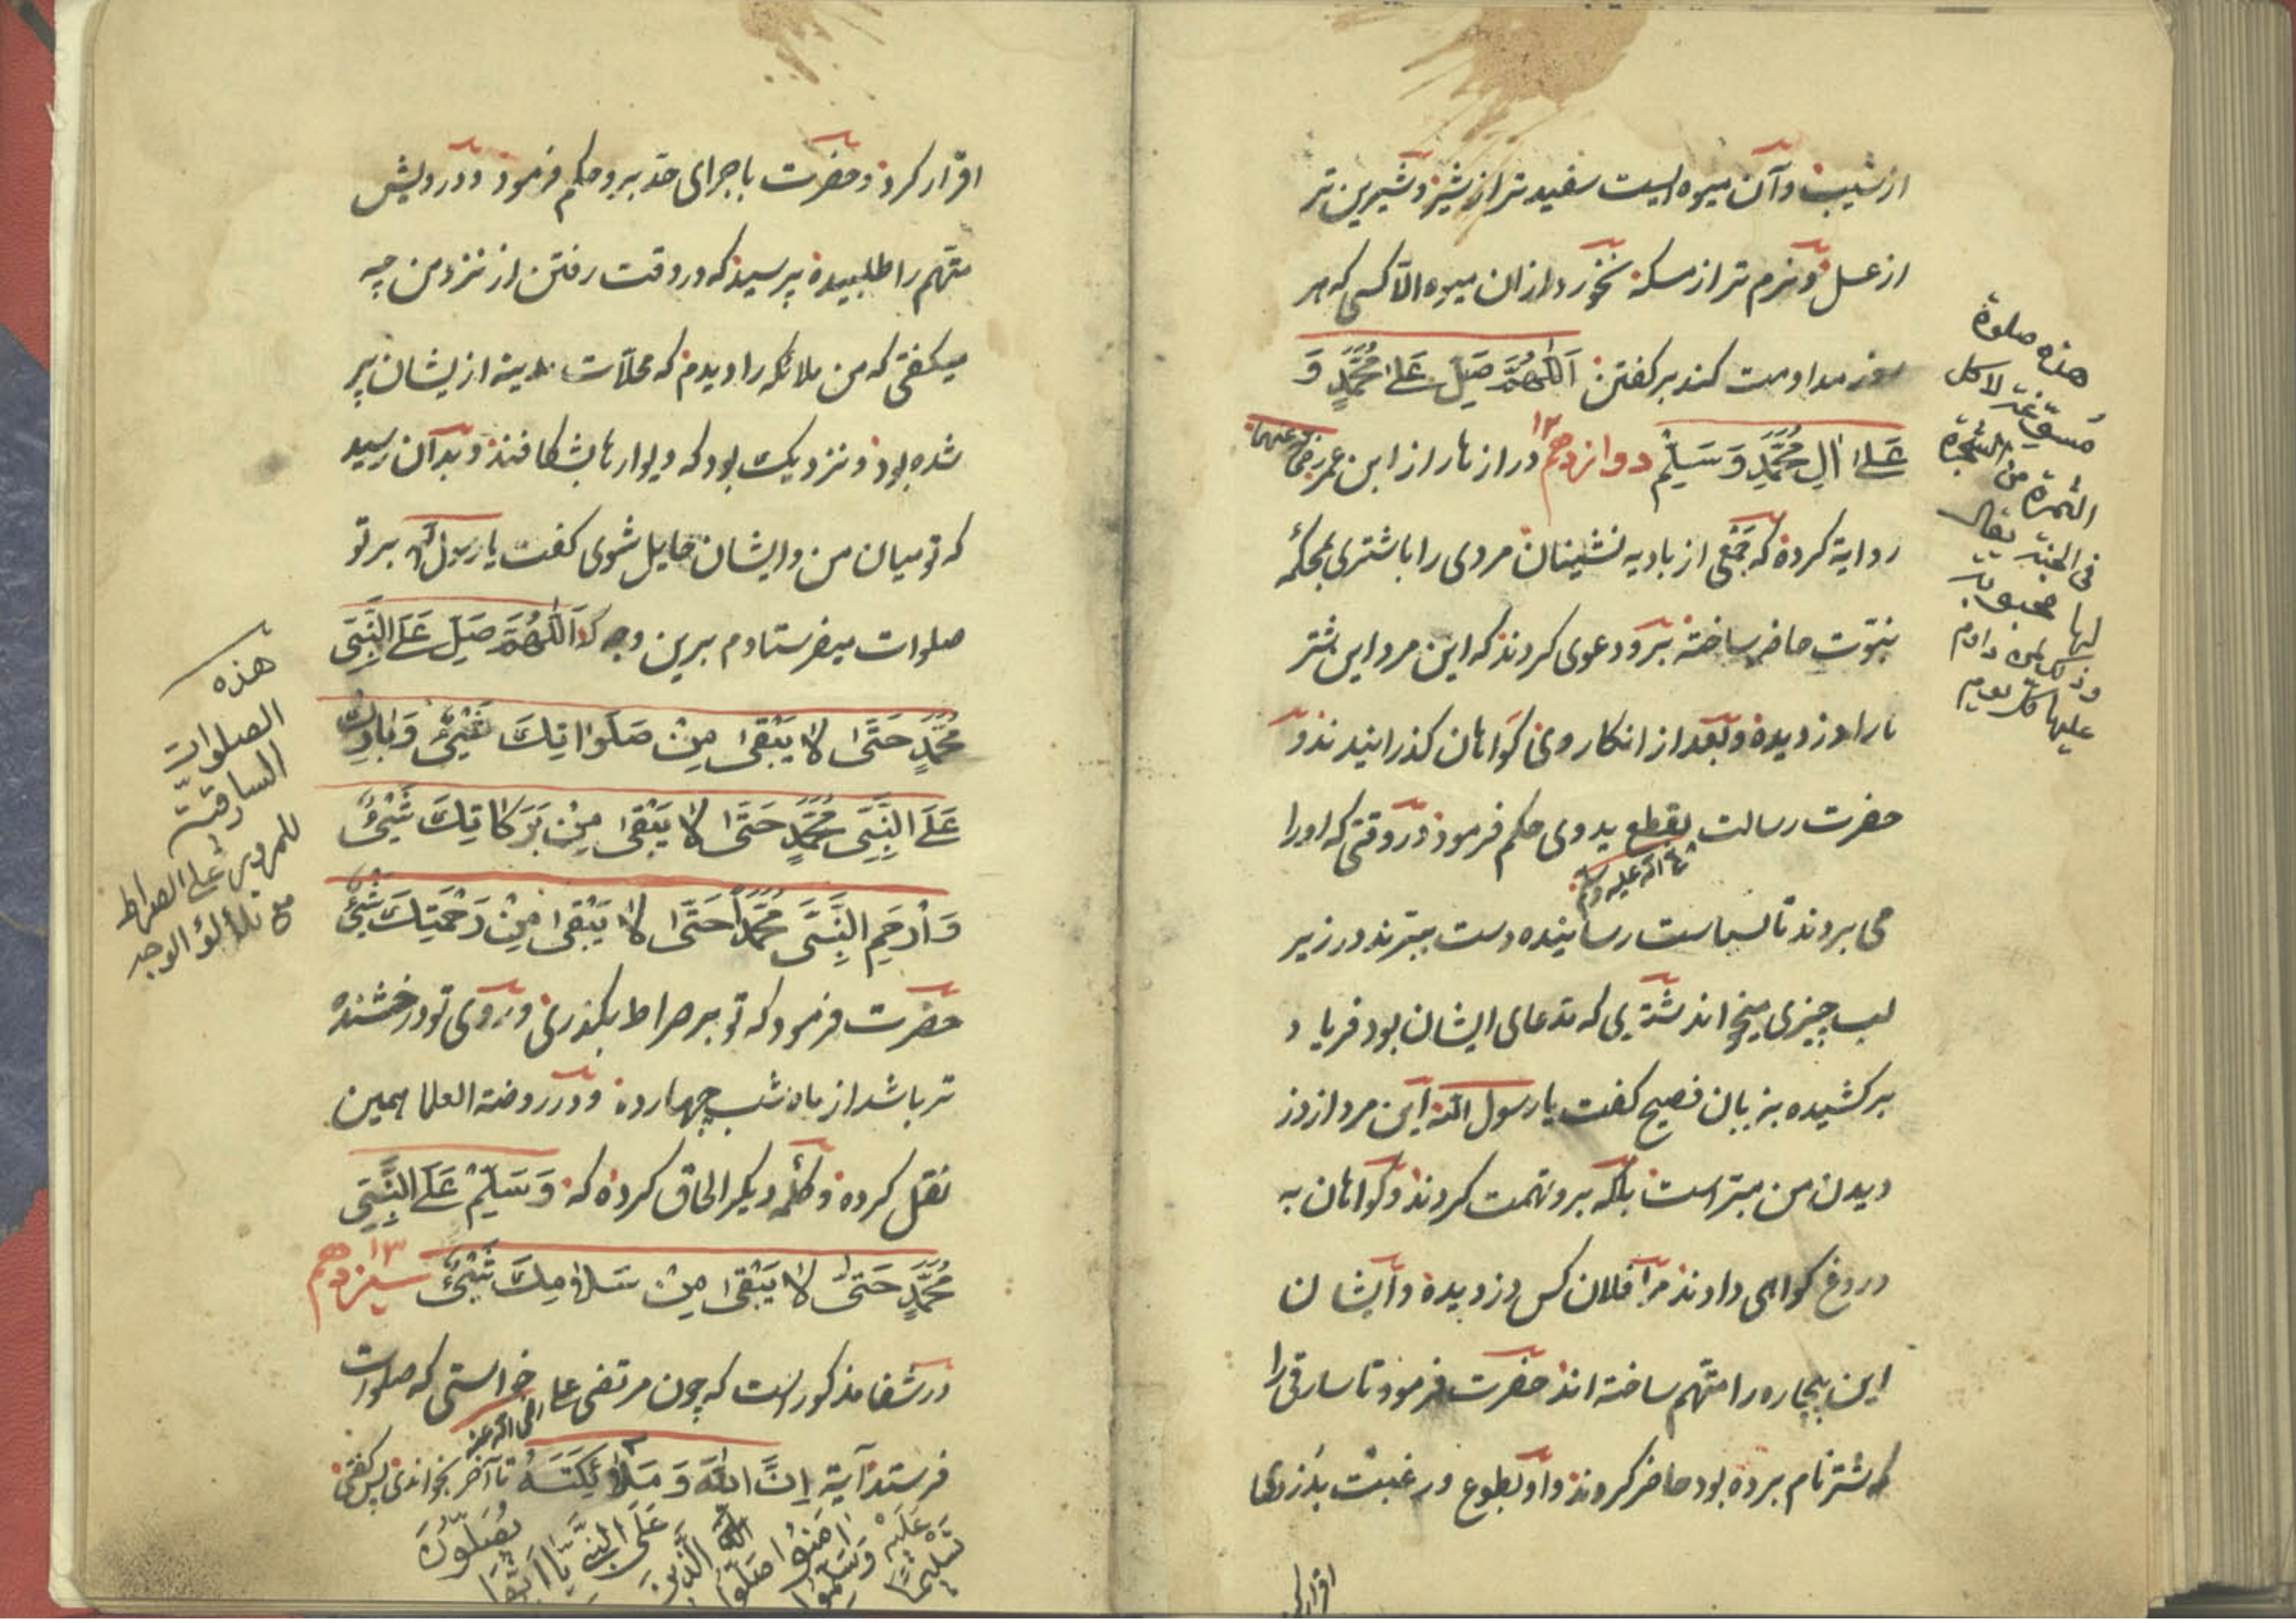 از شیب و آن میوه ایست سفید تر از شیر و شیرین تر
از عسل و نرم تر از مسکه نخورد ازان میوه الّا کسی که هر
روز مداومت کند بر کفتن اَللّٰهُمَّ صَلِّ عَلٰی مُحَمَّدٍ وَ
عَلٰی اٰلِ مُحَمَّدٍ وَ سَلِّمْ دوازدهم ۱۲ در ازهار از ابن عمر رضی عنهما
روایة کرده که جمعی از بادیه نشینان مردی را باشتری بمحکمٔه
نبوّت حاضر ساخته برو دعوی کردند که این مرد این شتر
مارا دزدیده و بعد از انکار وی کواهان کذرانیدند و
حضرت رسالت بقطع ید وی حکم فرمود در وقتی که اورا
صلی الله علیه وسلم
می بردند تا بسیاست رسانیده دست ببرند در زیر
لب چیزی میخواند شتری که مدعای ایشان بود فریاد
برکشیده بزبان فصیح کفت یا رسول الله این مرد از دز
دیدن من مبرّاست بلکه برو تهمت کردند و کواهان به
دروغ کواهی دادند مرا فلان کس دزدیده و ایشان
این بیچاره را متّهم ساخته اند حضرت فرمود تا سارقی را
که شتر نام برده بود حاضر کردند و او بطوع و رغبت بدزدی
اقرار کر
هذه صلوة
لاکل
الثمرة من الشجرة
فی الجنة یقال
لها محبوبة
وذلک لمن داوم
علیها کل یوم
اقرار کرد و حضرت باجرای حد برو حکم فرمود و درویش
متهم را طلبیده پرسید که در وقت رفتن از نزد من چه
میکفتی که من ملائکه را دیدم که محلّات مدینه ازیشان پر
شده بود و نزدیک بود که دیوارها بشکافند و بدان رسید
که تو میان من و ایشان حایل شوی کفت یا رسول الله بر تو
صلوات میفرستادم برین وجه که اَللّٰهُمَّ صَلِّ عَلَی النَّبِیِّ
مُحَمَّدٍ حَتّٰی لَا یَبْقٰی مِنْ صَلَوَاتِکَ شَیْئٌ وَ بَارِکْ
عَلَی النَّبِیِّ مُحَمَّدٍ حَتّٰی لَا یَبْقٰی مِنْ بَرَکَاتِکَ شَیْئٌ
وَ ارْحَمِ النَّبِیَّ مُحَمَّدًا حَتّٰی لَا یَبْقٰی مِنْ رَحْمَتِکَ شَیْئٌ
حضرت فرمود که تو بر صراط بکذری و روی تو درخشنده
تر باشد از ماه شب چهارده و در روضة العلما همین
نقل کرده و کلمه دیکر الحاق کرده که وَ سَلِّمْ عَلَی النَّبِیِّ
مُحَمَّدٍ حَتّٰی لَا یَبْقٰی مِنْ سَلَامِکَ شَیْئٌ سیزدهم ۱۳
در شفا مذکور است که چون مرتضی علی خواستی که صلوات
رضی الله عنه
فرستد آیة اِنَّ اللّٰهَ وَ مَلٰئِکَتَهُ تا آخر بخواندی پس کفتی
یُصَلُّونَ عَلَی النَّبِیِّ یَا اَیُّهَا الَّذِینَ اٰمَنُوا صَلُّوا عَلَیْهِ وَ سَلِّمُوا تَسْلِیمًا
هذه
الصلوات
السارقیّة
للمرور علی الصراط
مع تلألؤ الوجه